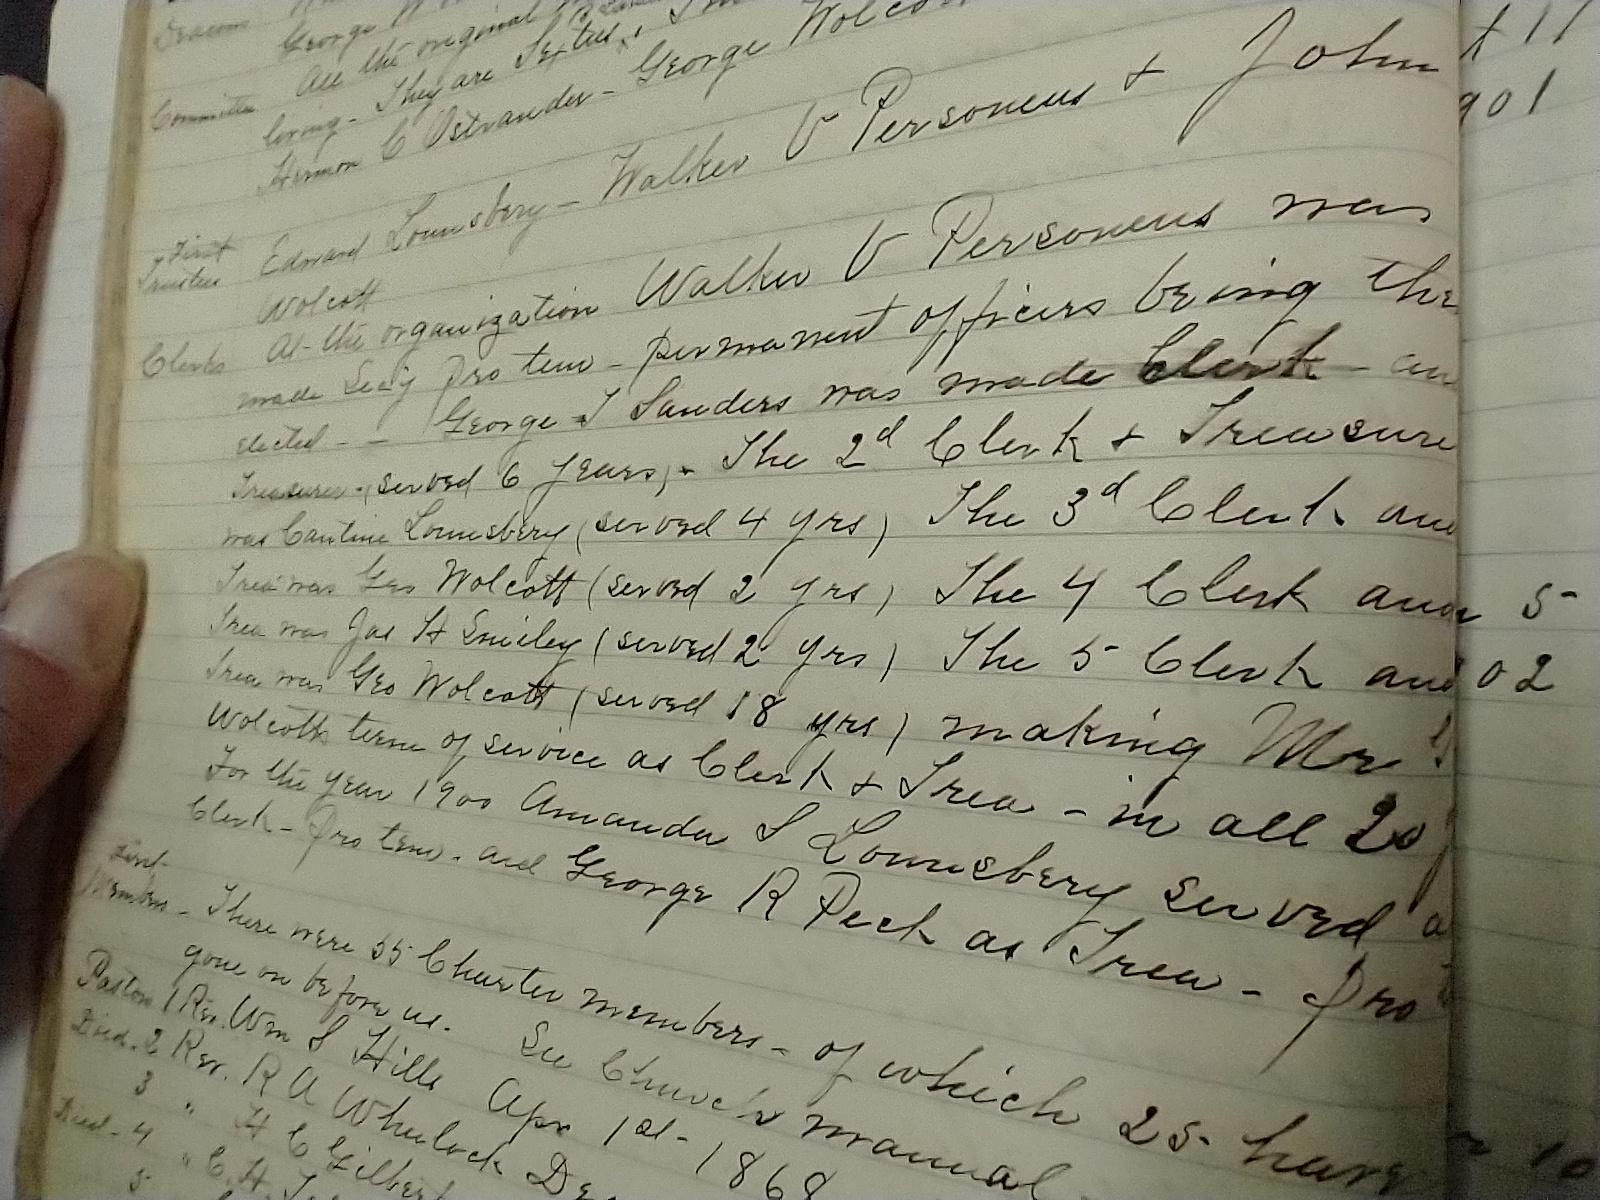 Deacon
George W
All the original
Committee living - They are Sextus
Hermon C Ostrander - George Wolcott
First Trustees Edward Lounsbery - Walker V Personeus & John
Wolcott
Clerks At the organization Walker V Personeus was
made Secy pro tem - permanent officers being then
elected - - George T Sanders was made Clerk - and
Treasurer - (served 6 years) - The 2d Clerk & Treasure
was Cantine Lounsbery (served 4 yrs) The 3d Clerk and
Trea was Geo Wolcott (served 2 yrs) The 4 Clerk and
Trea was Jas H Smiley (served 2 yrs) The 5 Clerk and
Trea was Geo Wolcott (served 18 yrs) making Mr
Wolcotts term of service as Clerk & Trea - in all 20
For the year 1900 Amanda S Lounsbery served a
Clerk - pro tem - and George R Peck as Trea - pro
First Members - There were 55 Charter members - of which 25 have
gone on before us. See Church manual
Pastors 1 Rev. Wm S Hills Apr 1st - 1868
Died - 2 Rev. R A Wheelock De
3 " H C Gilbert
Died - 4 " C. H.
5
t 11
901
5-
02
10